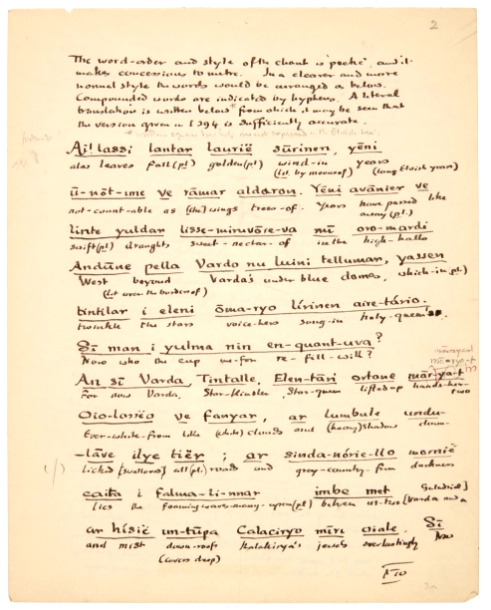 2
The word-order and style of the chant is "poetic", and it
makes concessions to metre. In a clearer and more
normal style the words would be arranged as below.
Compounded words are indicated by hyphens. A literal
translation is written below from which it may be seen that
the version given in I 394 is sufficiently accurate.
Ai! lassi lantar laurië sūrinen, yēni
alas leaves fall (pl) golden (pl) wind-in years
(long Elvish years)
ū-nōt-ime ve rāmar aldaron. Yēni avānier ve
not-count-able as (the) wings trees-of. Years have passed like
away (pl.)
linte yuldar lisse-miruvōre-va mī oro-mardi
swift (pl) draughts sweet-nectar-of in the high-halls
Andūne pella Vardo nu luini tellumar, yassen
West beyond Varda's under blue domes, which-in (pl)
(lit over the border of)
tintilar i eleni ōma-ryo lírinen aire-tário.
twinkle the stars voice-hers song-in holy-queen's.
Sī man i yulma nin en-quant-uva?
Now who the cup me-for re-fill-will?
An sī Varda, Tintalle, Elen-tāri ortane mār-ya-t
For now Varda, Star-kindler, Star-queen lifted-up hands-her-
two
Oio-lossëo ve fanyar, ar lumbule undu-
Ever-white-from like (white) clouds and (heavy) shadow down-
-lāve ilye tiër; ar sinda-nōrie-llo mornië
licked (swallowed) all (pl.) roads and grey-country-from darkness
caita i falma-li-nnar imbe met
lies the foaming waves-many-upon (pl) between us-two (Varda and
Galadriel)
ar hísië un-tūpa Calaciryo mīri oiale. Sī
and mist down-roofs Kalakirya's jewels everlastingly Now